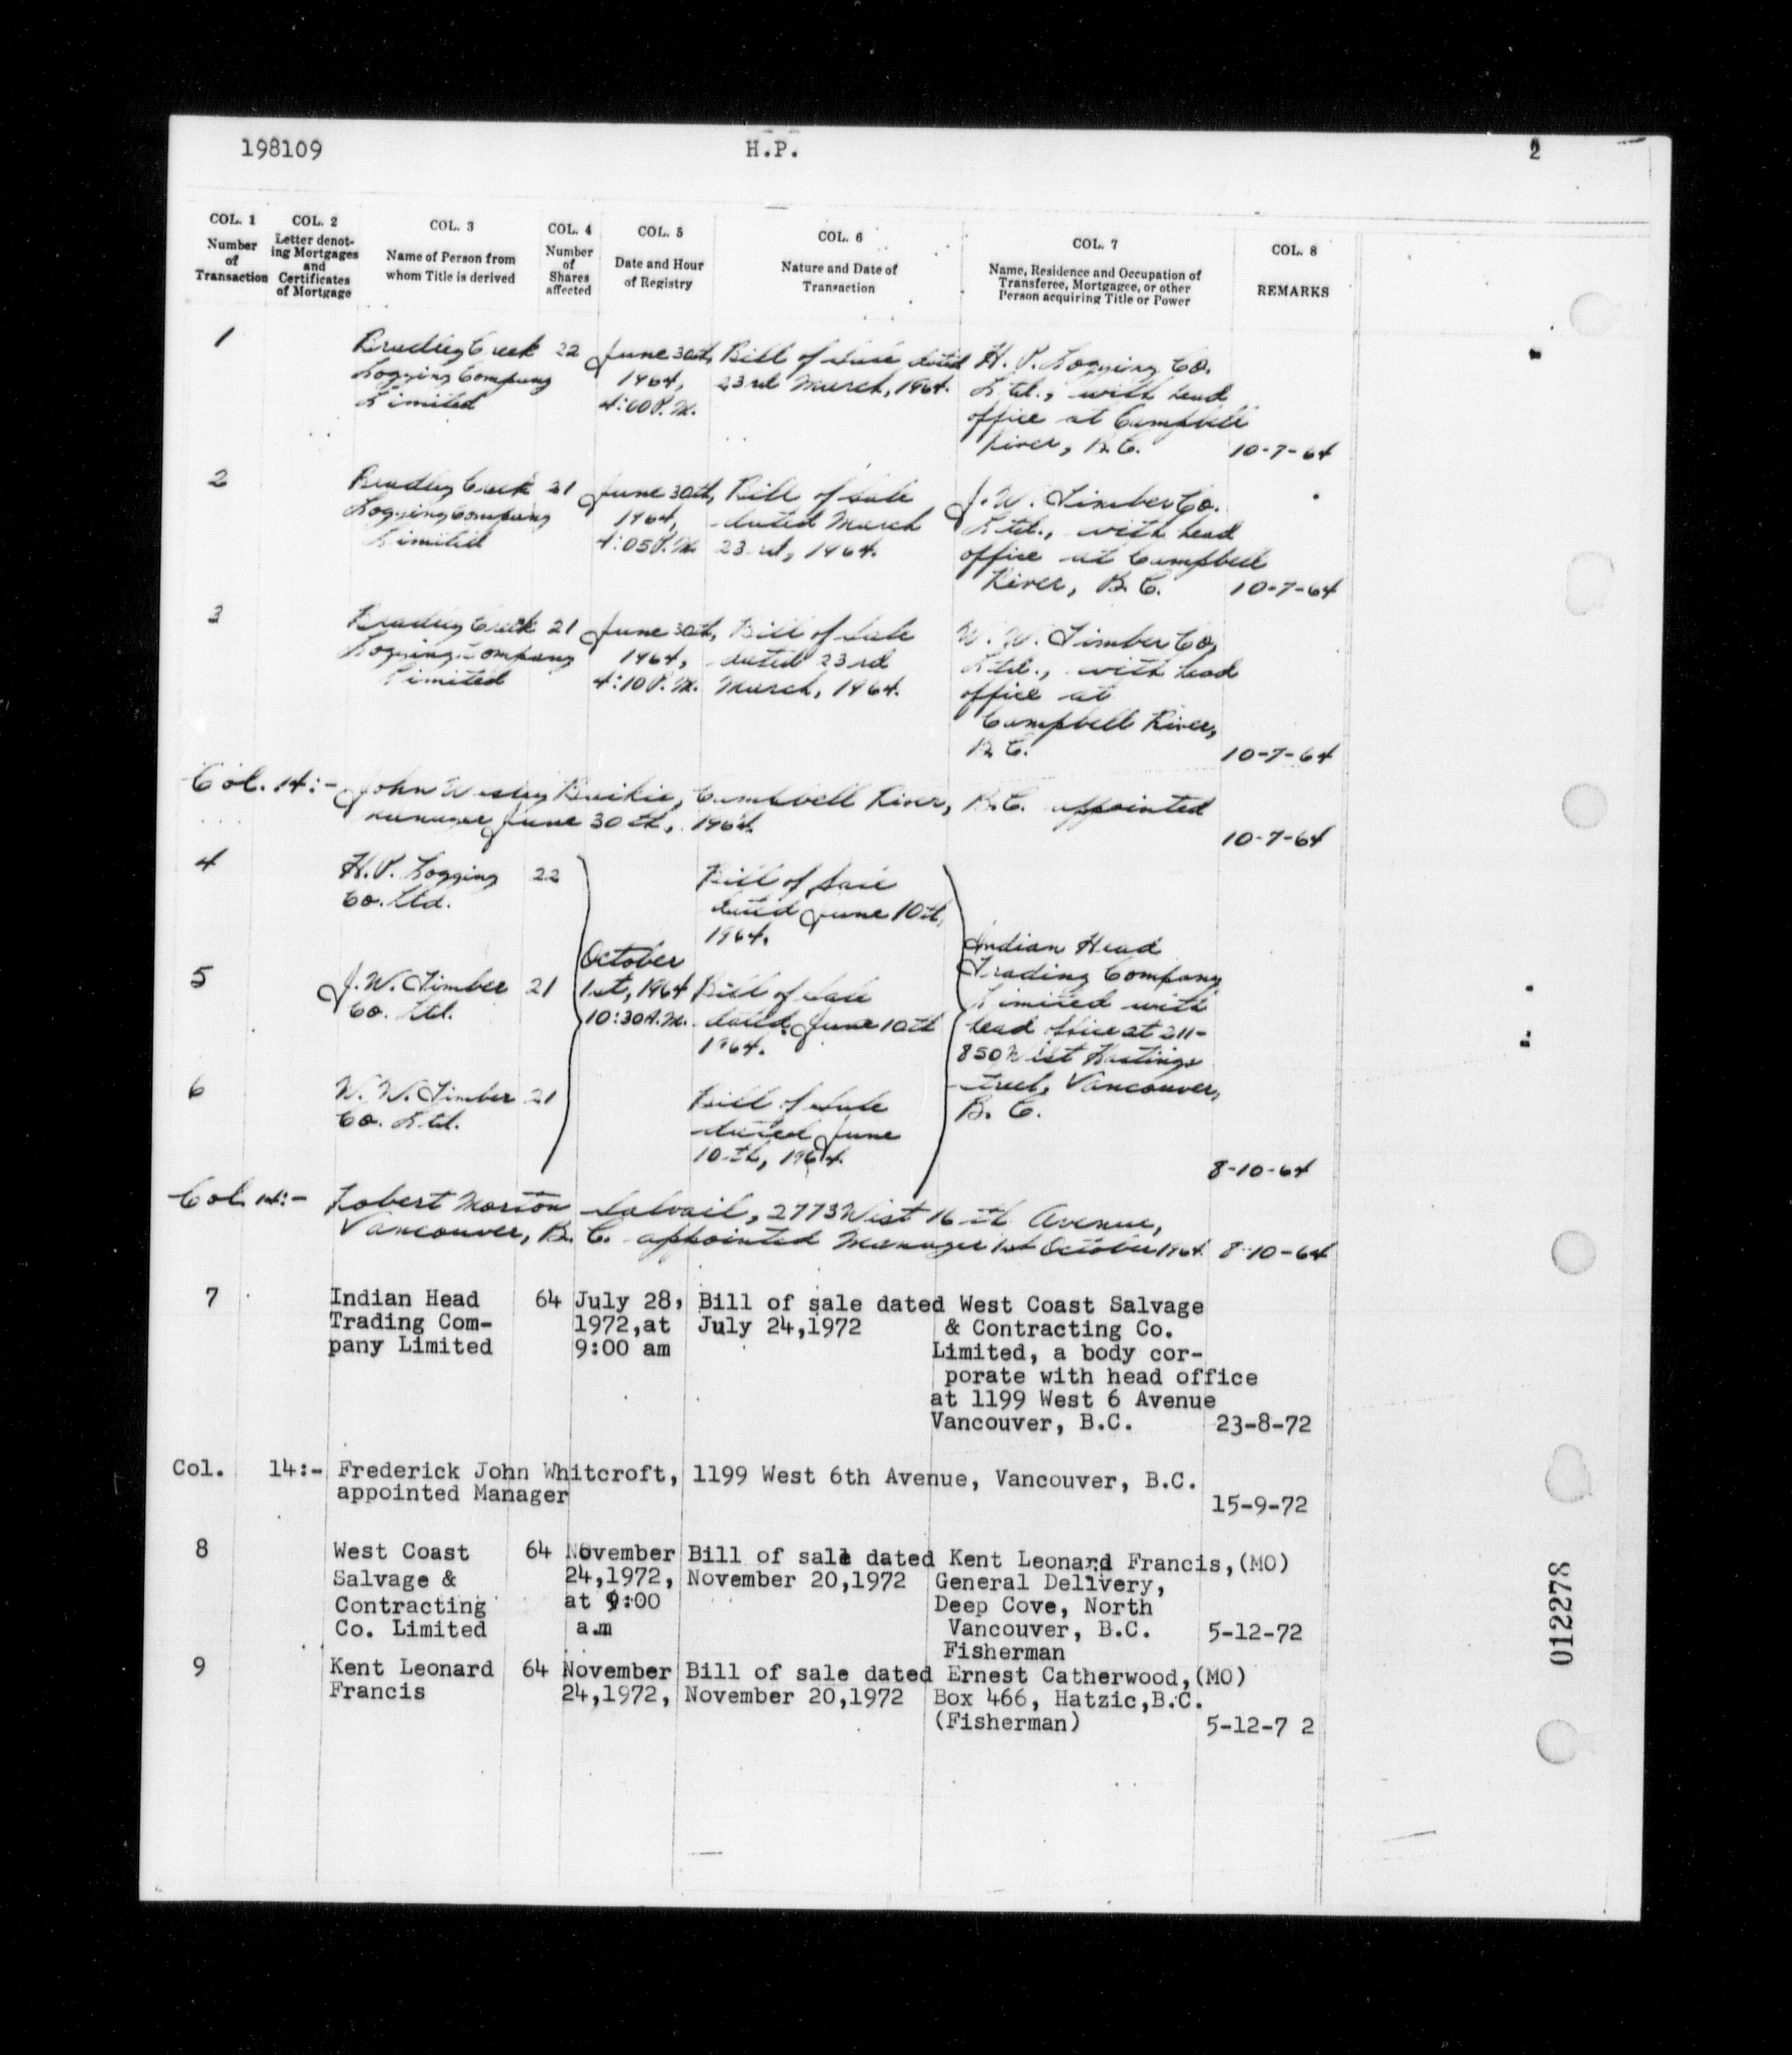 198109 H.P. 2
COL. 1 COL. 2 COL. 3 COL. 4 COL. 5 COL. 6 COL. 7 COL. 8
Number of Transaction
Letter denoting Mortgages and Certificates of Mortgage
Name of Person from whom Title is derived
Number of Shares affected
Date and Hour of Registry
Nature and Date of Transaction
Name, Residence and Occupation of Transferee, Mortgagee, or other Person acquiring Title or Power
REMARKS
1 Bradley Creek 22 June 30th, Bill of Sale dated H. P. Logging Co.
Logging Company 1964, 23rd March, 1964. Ltd., with head
Limited 4:00 P.M. office at Campbell
River, B.C. 10-7-64
2 Bradley Creek 21 June 30th, Bill of Sale J. W. Timber Co.
Logging Company 1964, dated March Ltd., with head
Limited 4:05 P.M. 23rd, 1964. office at Campbell
River, B.C. 10-7-64
3 Bradley Creek 21 June 30th, Bill of Sale W. W. Timber Co.
Logging Company 1964, dated 23rd Ltd., with head
Limited 4:10 P.M. March, 1964. office at
Campbell River,
B.C. 10-7-64
Col. 14:- John Wesley Baikie, Campbell River, B.C. appointed
manager June 30th, 1964. 10-7-64
4 H.P. Logging 22 Bill of Sale
Co. Ltd. dated June 10th,
1964.
5 J.W. Timber 21 October 1st, 1964 10:30 A.M. Bill of Sale
Co. Ltd. dated June 10th
1964.
6 W. W. Timber 21 Bill of Sale
Co. Ltd. dated June
10th, 1964.
Indian Head
Trading Company
Limited with
head office at 211-
850 West Hastings
Street, Vancouver,
B. C.
8-10-64
Col. 14:- Robert Morton Salvail, 2773 West 16th Avenue,
Vancouver, B.C. appointed Manager 1st October 1964. 8-10-64
7 Indian Head 64 July 28, Bill of sale dated West Coast Salvage
Trading Com- 1972,at July 24,1972 & Contracting Co.
pany Limited 9:00 am Limited, a body cor-
porate with head office
at 1199 West 6 Avenue
Vancouver, B.C. 23-8-72
Col. 14:- Frederick John Whitcroft, 1199 West 6th Avenue, Vancouver, B.C.
appointed Manager
15-9-72
8 West Coast 64 November Bill of sale dated Kent Leonard Francis,(MO)
Salvage & 24,1972, November 20,1972 General Delivery,
Contracting at 9:00 Deep Cove, North
Co. Limited a.m Vancouver, B.C. 5-12-72
Fisherman
9 Kent Leonard 64 November Bill of sale dated Ernest Catherwood,(MO)
Francis 24,1972, November 20,1972 Box 466, Hatzic,B.C.
(Fisherman) 5-12-7 2
012278